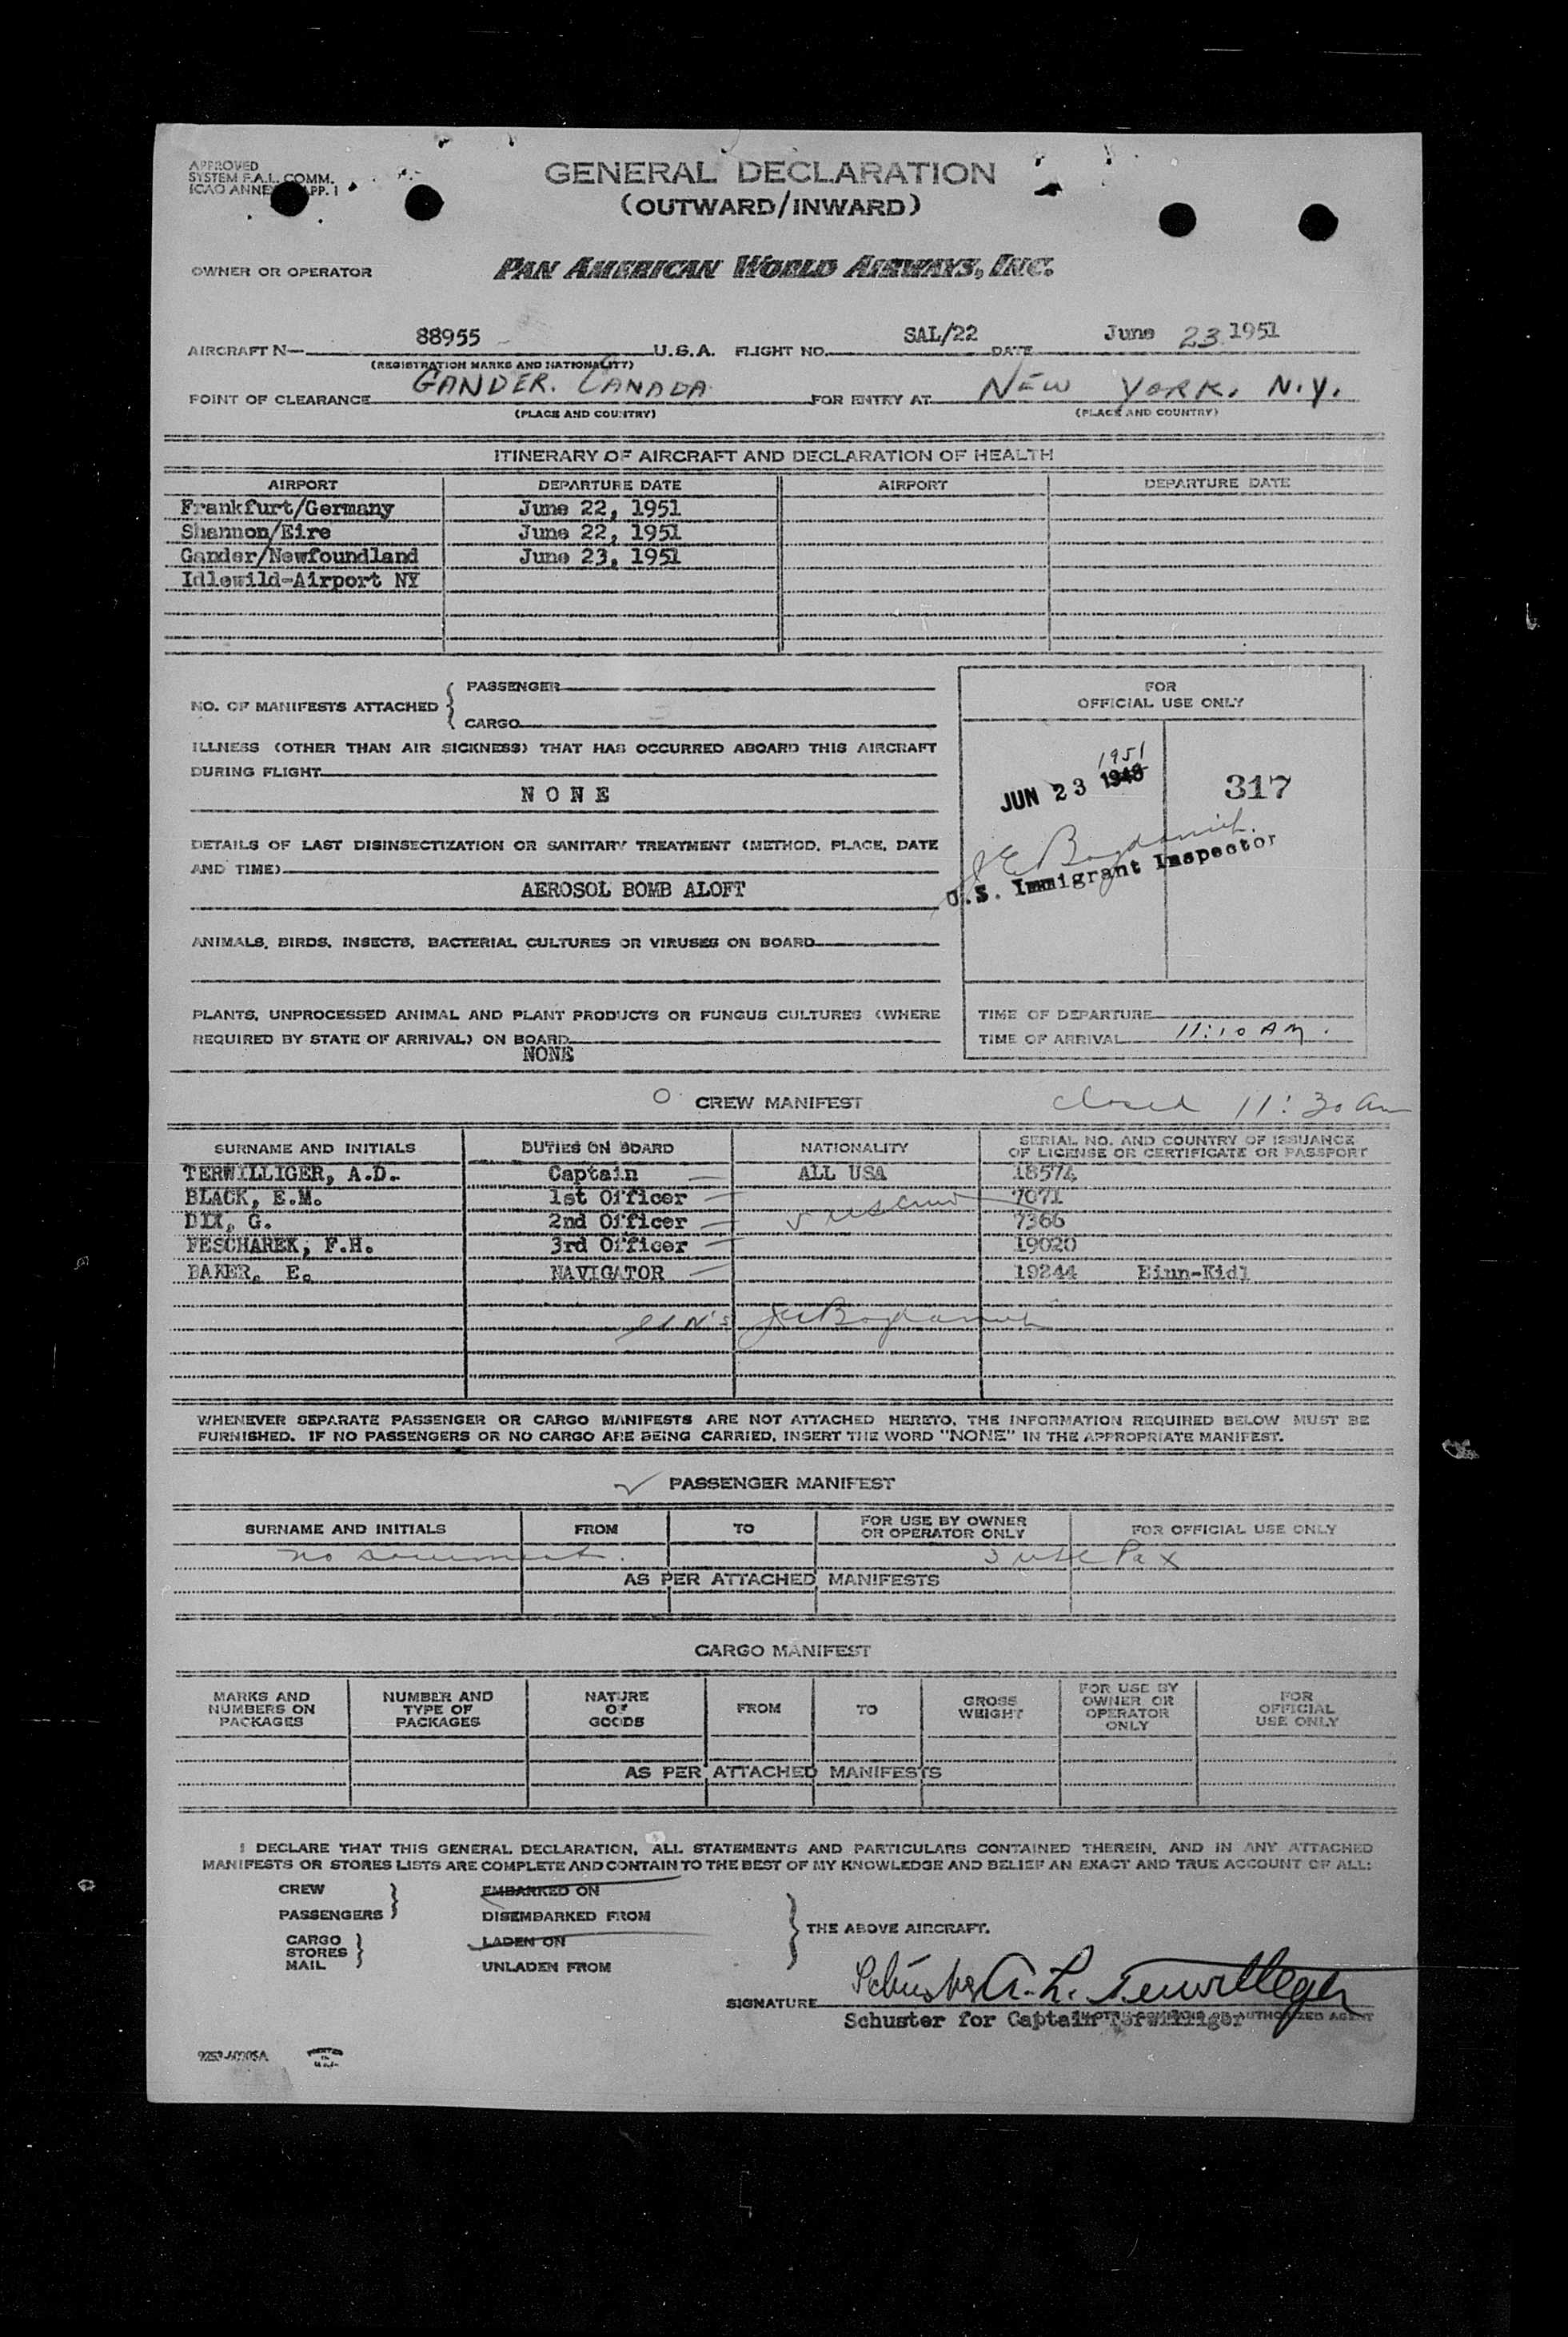 APPROVED
SYSTEM F.A.L. COMM.
ICAO ANNEX APP. 1
GENERAL DECLARATION
(OUTWARD/INWARD)
OWNER OR OPERATOR PAN AMERICAN WORLD AIRWAYS, INC.
AIRCRAFT N— 88955 U.S.A. FLIGHT NO. SAL/22 DATE June 23 1951
(REGISTRATION MARKS AND NATIONALITY)
POINT OF CLEARANCE GANDER. CANADA FOR ENTRY AT NEW YORK, N.Y.
(PLACE AND COUNTRY) (PLACE AND COUNTRY)
ITINERARY OF AIRCRAFT AND DECLARATION OF HEALTH
AIRPORT DEPARTURE DATE AIRPORT DEPARTURE DATE
Frankfurt/Germany June 22, 1951
Shannon/Eire June 22, 1951
Gander/Newfoundland June 23, 1951
Idlewild-Airport NY
NO. OF MANIFESTS ATTACHED { PASSENGER
CARGO
ILLNESS (OTHER THAN AIR SICKNESS) THAT HAS OCCURRED ABOARD THIS AIRCRAFT
DURING FLIGHT
NONE
DETAILS OF LAST DISINSECTIZATION OR SANITARY TREATMENT (METHOD, PLACE, DATE
AND TIME)
AEROSOL BOMB ALOFT
ANIMALS, BIRDS, INSECTS, BACTERIAL CULTURES OR VIRUSES ON BOARD
PLANTS, UNPROCESSED ANIMAL AND PLANT PRODUCTS OR FUNGUS CULTURES (WHERE
REQUIRED BY STATE OF ARRIVAL) ON BOARD
NONE
FOR
OFFICIAL USE ONLY
1951
JUN 23 1948
317
J E Bogdanich
U.S. Immigrant Inspector
TIME OF DEPARTURE
TIME OF ARRIVAL 11:10 AM.
CREW MANIFEST
closed 11:30 am
SURNAME AND INITIALS DUTIES ON BOARD NATIONALITY SERIAL NO. AND COUNTRY OF ISSUANCE
OF LICENSE OR CERTIFICATE OR PASSPORT
TERWILLIGER, A.D. Captain ALL USA 18574
BLACK, E.M. 1st Officer 7071
DIX, G. 2nd Officer 7366
PESCHAREK, F.H. 3rd Officer 19020
BAKER, E. NAVIGATOR 19244 Einn-Kidl
WHENEVER SEPARATE PASSENGER OR CARGO MANIFESTS ARE NOT ATTACHED HERETO, THE INFORMATION REQUIRED BELOW MUST BE
FURNISHED. IF NO PASSENGERS OR NO CARGO ARE BEING CARRIED, INSERT THE WORD "NONE" IN THE APPROPRIATE MANIFEST.
✓ PASSENGER MANIFEST
SURNAME AND INITIALS FROM TO FOR USE BY OWNER
OR OPERATOR ONLY FOR OFFICIAL USE ONLY
no document. 3 usc Pax
AS PER ATTACHED MANIFESTS
CARGO MANIFEST
MARKS AND
NUMBERS ON
PACKAGES
NUMBER AND
TYPE OF
PACKAGES
NATURE
OF
GOODS
FROM
TO
GROSS
WEIGHT
FOR USE BY
OWNER OR
OPERATOR
ONLY
FOR
OFFICIAL
USE ONLY
AS PER ATTACHED MANIFESTS
I DECLARE THAT THIS GENERAL DECLARATION, ALL STATEMENTS AND PARTICULARS CONTAINED THEREIN, AND IN ANY ATTACHED
MANIFESTS OR STORES LISTS ARE COMPLETE AND CONTAIN TO THE BEST OF MY KNOWLEDGE AND BELIEF AN EXACT AND TRUE ACCOUNT OF ALL:
CREW
PASSENGERS
CARGO
STORES
MAIL
EMBARKED ON
DISEMBARKED FROM
LADEN ON
UNLADEN FROM
THE ABOVE AIRCRAFT.
SIGNATURE Schuster A. L. Terwilleger
Schuster for Captain Terwilliger AUTHORIZED AGENT
PRINTED
IN
U.S.A.